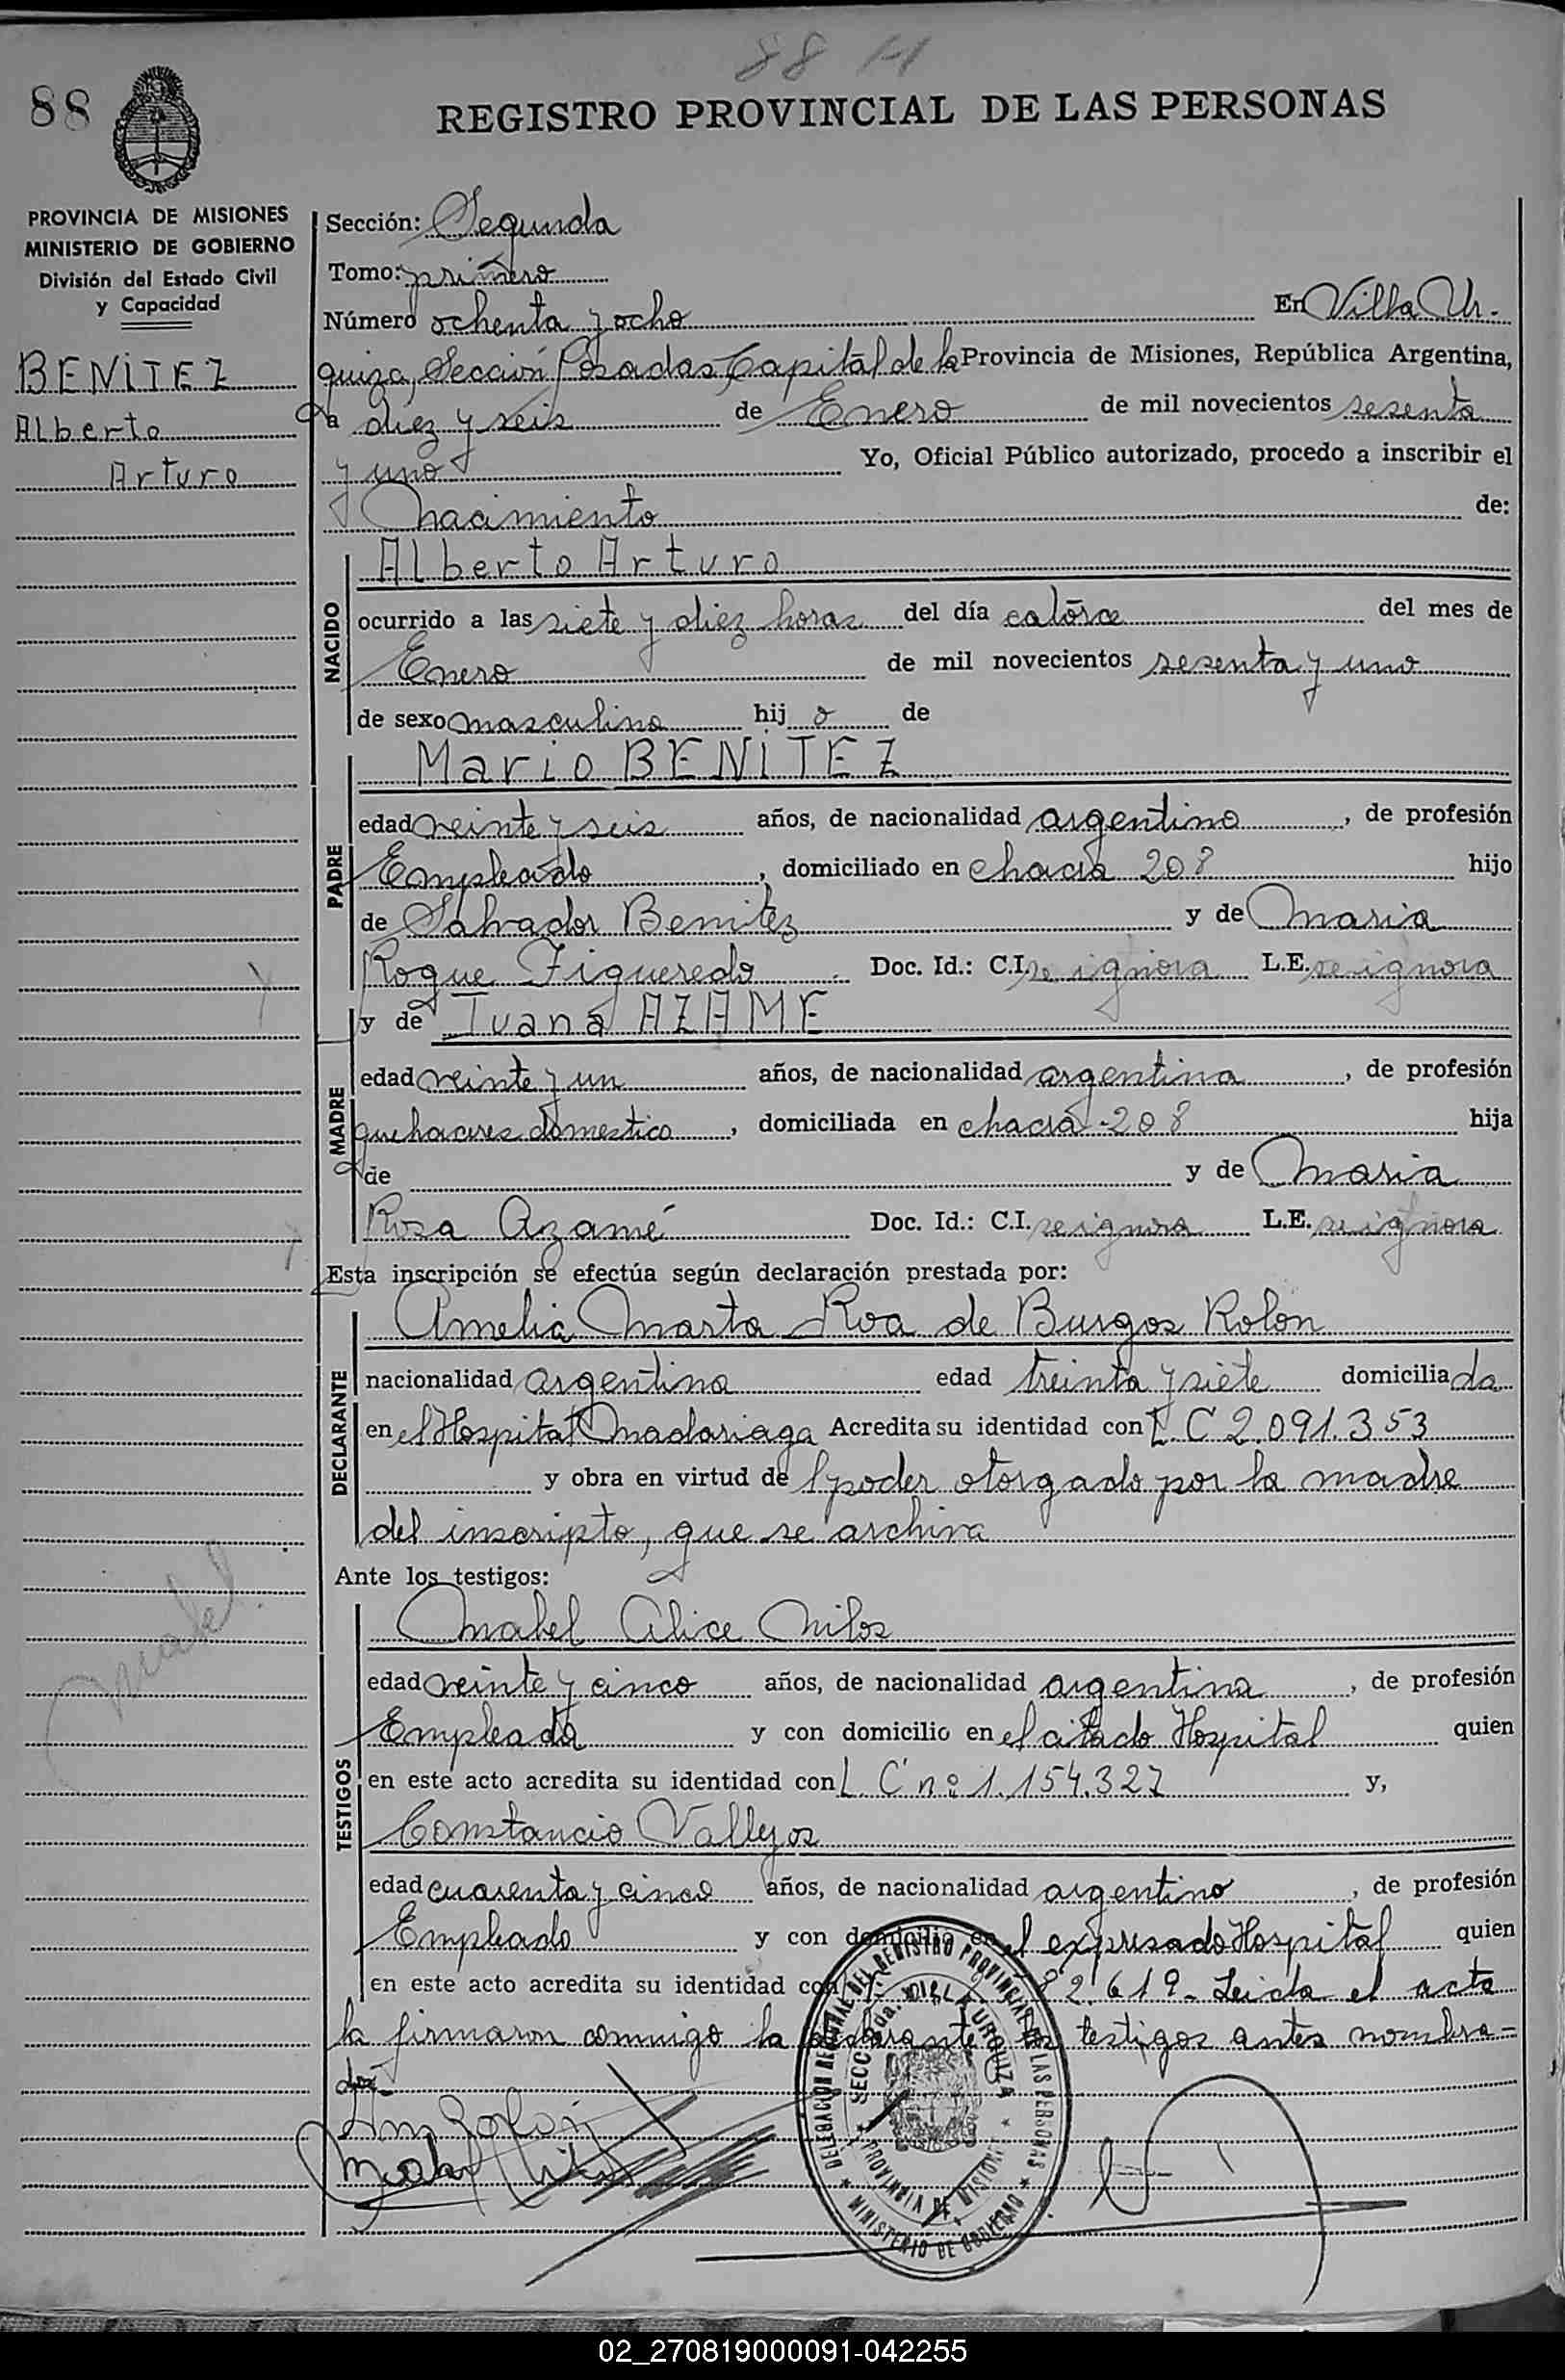 88 H
88
REGISTRO PROVINCIAL DE LAS PERSONAS
PROVINCIA DE MISIONES
MINISTERIO DE GOBIERNO
División del Estado Civil
y Capacidad
BENITEZ
Alberto
Arturo
Sección: Segunda
Tomo: primero
Número ochenta y ocho En Villa Ur-
quiza, Sección Posadas, Capital de la Provincia de Misiones, República Argentina,
a diez y seis de Enero de mil novecientos sesenta
y uno Yo, Oficial Público autorizado, procedo a inscribir el
Nacimiento de:
NACIDO
Alberto Arturo
ocurrido a las siete y diez horas del día catorce del mes de
Enero de mil novecientos sesenta y uno
de sexo masculino hijo de
PADRE
Mario BENITEZ
edad veinte y seis años, de nacionalidad argentino, de profesión
Empleado, domiciliado en chacra 208 hijo
de Salvador Benitez y de Maria
Roque Figueredo Doc. Id.: C.I. se ignora L.E. se ignora
y de Juana AZAME
MADRE
edad veinte y un años, de nacionalidad argentina, de profesión
quehaceres domestico, domiciliada en chacra 208 hija
de y de Maria
Rosa Azamé Doc. Id.: C.I. se ignora L.E. se ignora
Esta inscripción se efectúa según declaración prestada por:
DECLARANTE
Amelia Marta Roa de Burgos Rolon
nacionalidad argentina edad treinta y siete domiciliada
en el Hospital Madariaga Acredita su identidad con L. C 2.091.353
y obra en virtud del poder otorgado por la madre
del inscripto, que se archiva
Ante los testigos:
TESTIGOS
Mabel Alice Milos
edad veinte y cinco años, de nacionalidad argentina, de profesión
Empleada y con domicilio en el citado Hospital quien
en este acto acredita su identidad con L. C nº 1.154.327 y,
Constancio Vallejos
edad cuarenta y cinco años, de nacionalidad argentino, de profesión
Empleado y con domicilio en el expresado Hospital quien
en este acto acredita su identidad con 82.619- Leida el acta
la firmaron conmigo la declarante testigos antes nombra-
dos-
Mabel
DELEGACION REGIONAL DEL REGISTRO PROVINCIAL DE LAS PERSONAS
SECC. 2da. VILLA URQUIZA
PROVINCIA DE MISIONES
MINISTERIO DE GOBIERNO
02_270819000091-042255